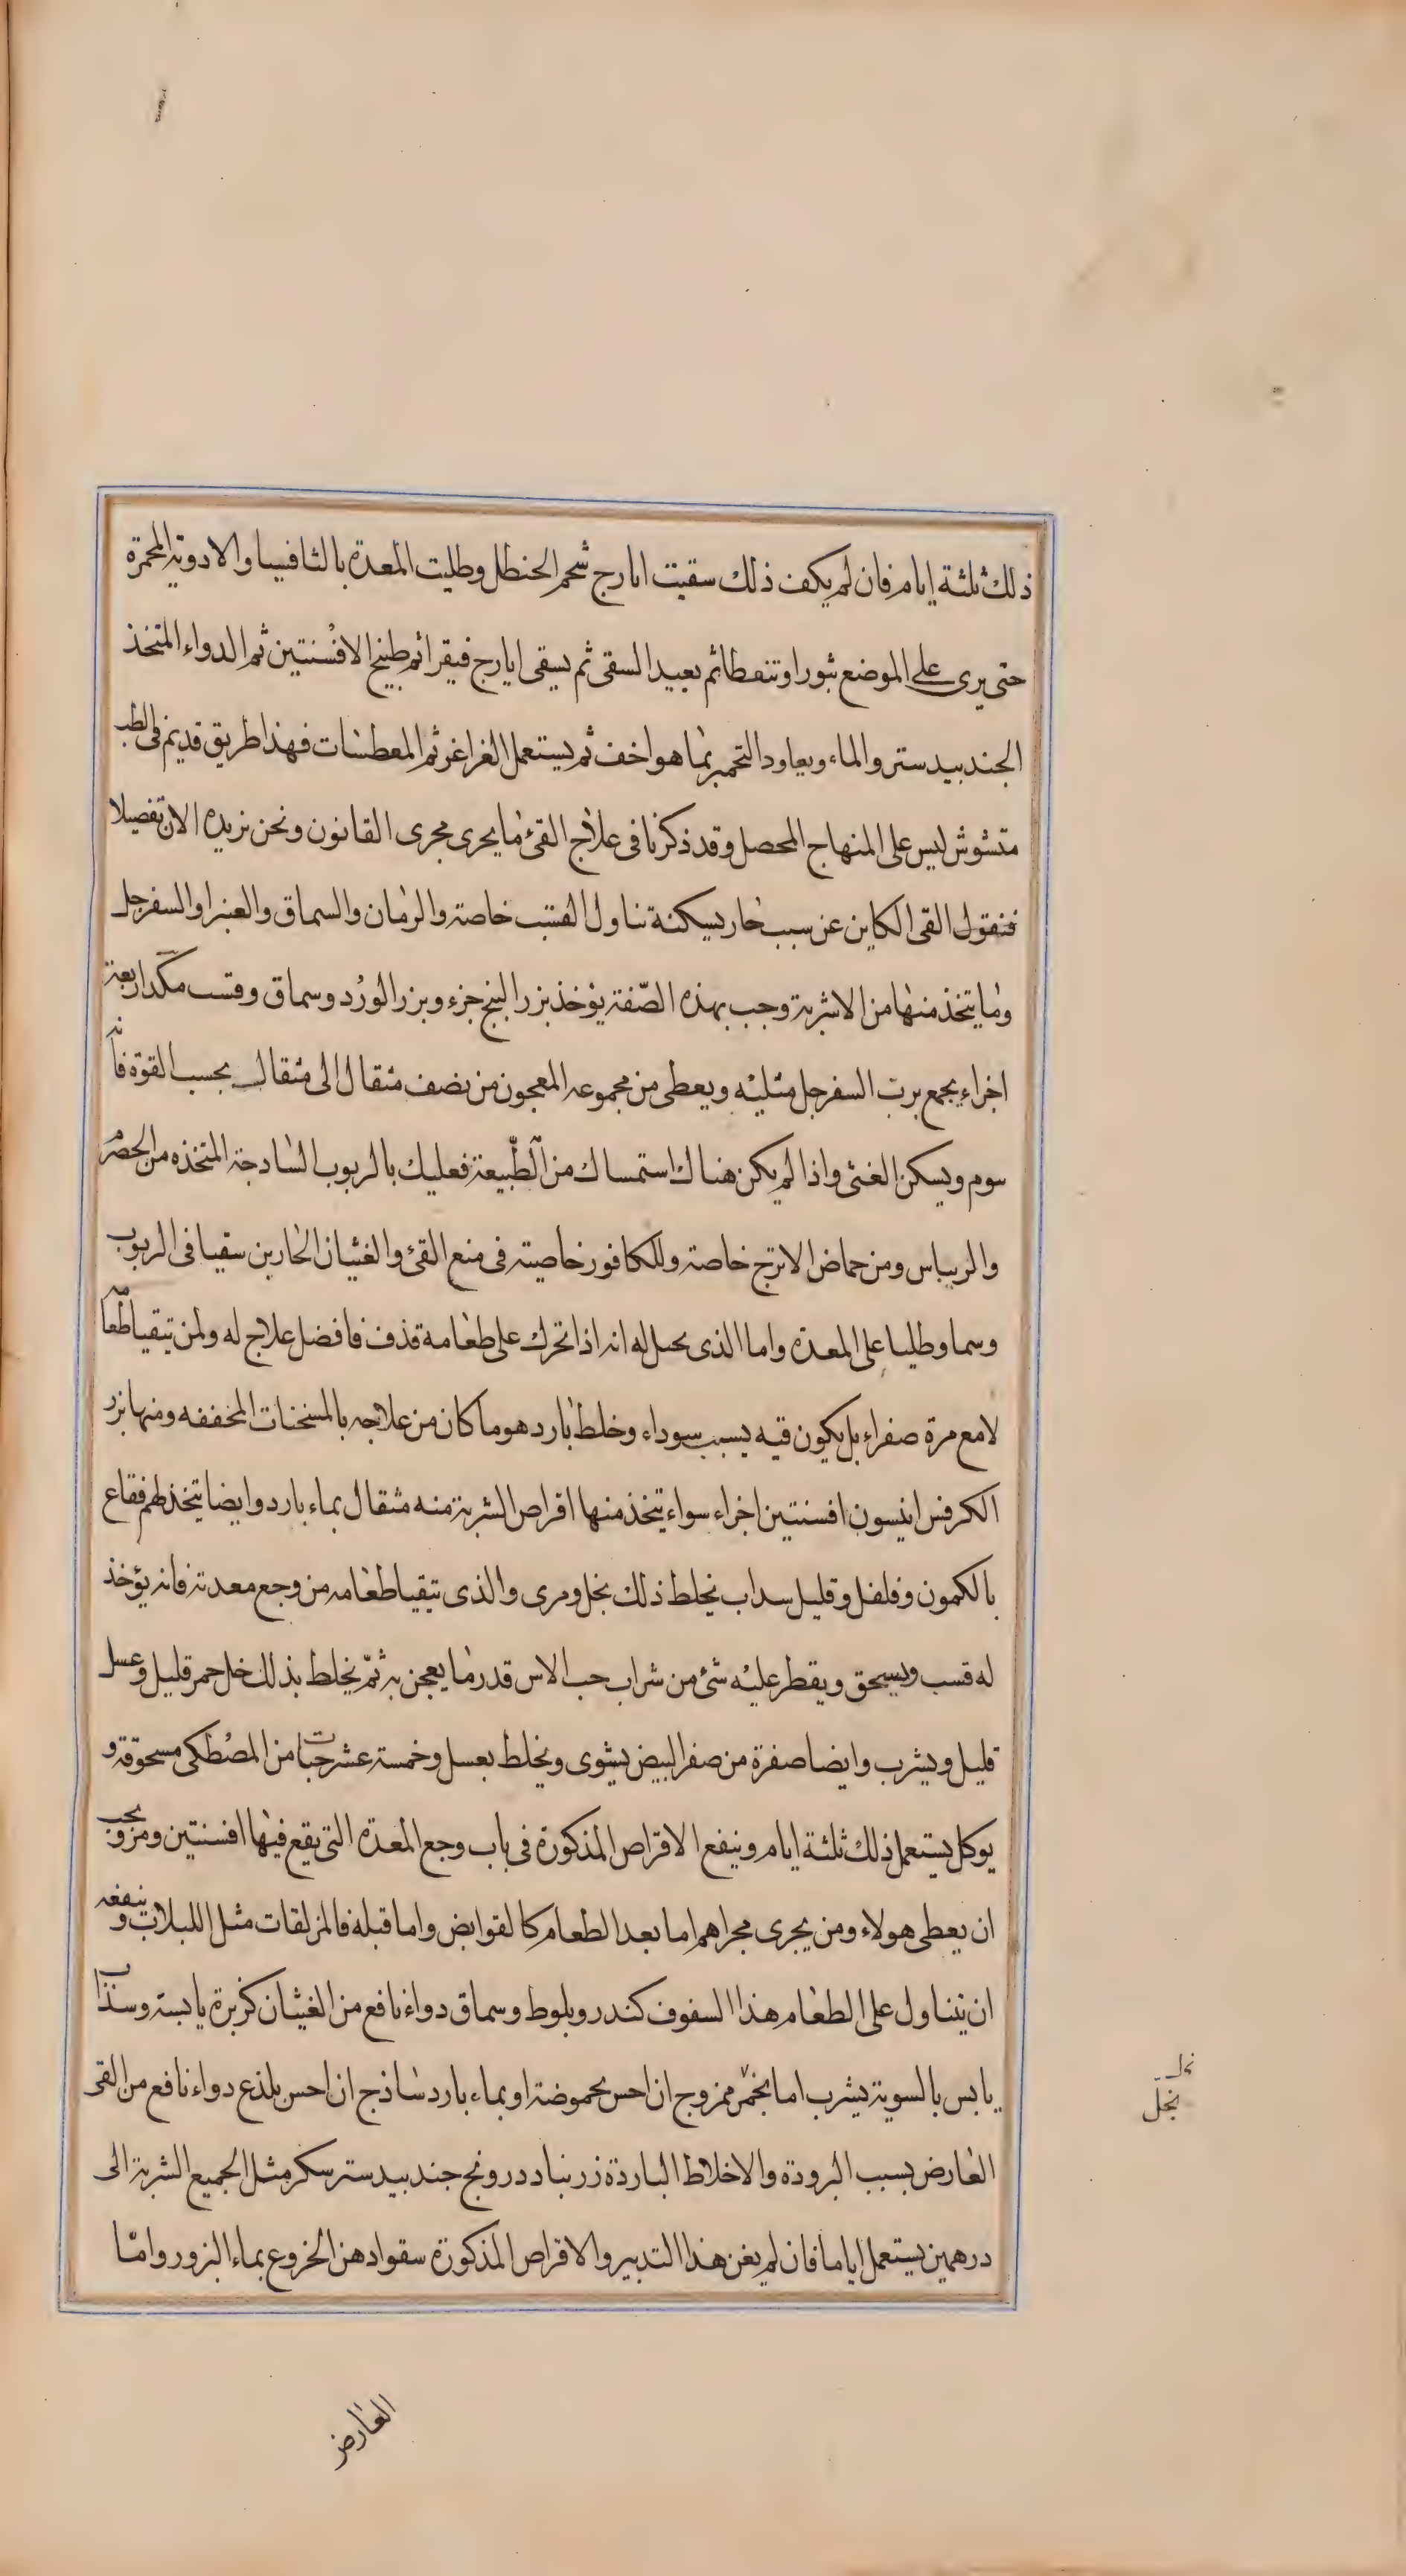 ذلك ثلثة ايام فان لم يكف ذلك سقيت ايارج شحم الحنطل وطليت المعدة بالثافيسا والادوية المحمرة
حتى يرى على الموضع بثورا وتنفطا ثم يعيد السقى ثم يسقى ايارج فيقرا ثم طبيخ الافسنتين ثم الدواء المتخذ
الجندبيدستر والماء ويعاود التحمير بما هو اخف ثم يستعمل الغراغر ثم المعطسات فهذا طريق قديم فى الطب
متشوش ليس على المنهاج المحصل وقد ذكرنا فى علاج القئ ما يجرى مجرى القانون ونحن نزيده الان تفصيلا
فنقول القى الكاين عن سبب حار يسكنة تناول القسب خاصة والرمان والسماق والغبيرا والسفرجل
وما يتخذ منها من الاشربة وحب بهذه الصفة يؤخذ بزر البنج جزء وبزر الورد وسماق وقسب مكد اربعة
اجزاء يجمع برب السفرجل مثليه ويعطى من مجموعه المعجون من نصف مثقال الى مثقال بحسب القوة فانه
سوم ويسكن الغثى واذا لم يكن هناك استمساك من الطبيعة فعليك بالربوب الساذجة المتخذه من الحصرم
والريباس ومن حماض الاترج خاصة وللكافور خاصية فى منع القئ والغثيان الحارين سقيا فى الربوب
وسما وطليا على المعدة واما الذى يحىل له انه اذا تحرك على طعامة قذف فافضل علاج له ولمن يتقيا طعامه
لا مع مرة صفراء بل يكون قيه بسبب سوداء وخلط بارد هو ما كان من علاجه بالمسخنات المخففه ومنها بزر
الكرفس انيسون افسنتين اجزاء سواء يتخذ منها اقراص الشربة منه مثقال بماء بارد وايضا يتخذ لهم فقاع
بالكمون وفلفل وقليل سداب يخلط ذلك بخل ومرى والذى يتقيا طعامه من وجع معدته فانه يؤخذ
له قسب ويسحق ويقطر عليه شئ من شراب حب الاس قدر ما يعجن به ثم يخلط بذلك خل خمر قليل وعسل
قليل ويشرب وايضا صفرة من صفر البيض يشوى ويخلط بعسل وخمسة عشر حبات من المصطكى مسحوقة و
يوكل يستعمل ذلك ثلثة ايام وينفع الاقراص المذكورة فى باب وجع المعدة التى يقع فيها افسنتين ومر ويجب
ان يعطى هولاء ومن يجرى مجراهم اما بعد الطعام كالقوابض واما قبله فالمزلقات مثل اللبلاب وينفعه
ان يتناول على الطعام هذا السفوف كندر وبلوط وسماق دواء نافع من الغثيان كزبرة يابسة وسذاب
يابس بالسوية يشرب اما بخمر ممزوج ان احس بحموضة او بماء بارد ساذج ان احس بلذع دواء نافع من القى
العارض بسبب البرودة والاخلاط الباردة زرنباد درونج جندبيدستر سكر مثل الجميع الشربة الى
درهمين يستعمل اياما فان لم يغن هذا التدبير والاقراص المذكورة سقوا دهن الخروع بماء البزور واما
بخل
العارض